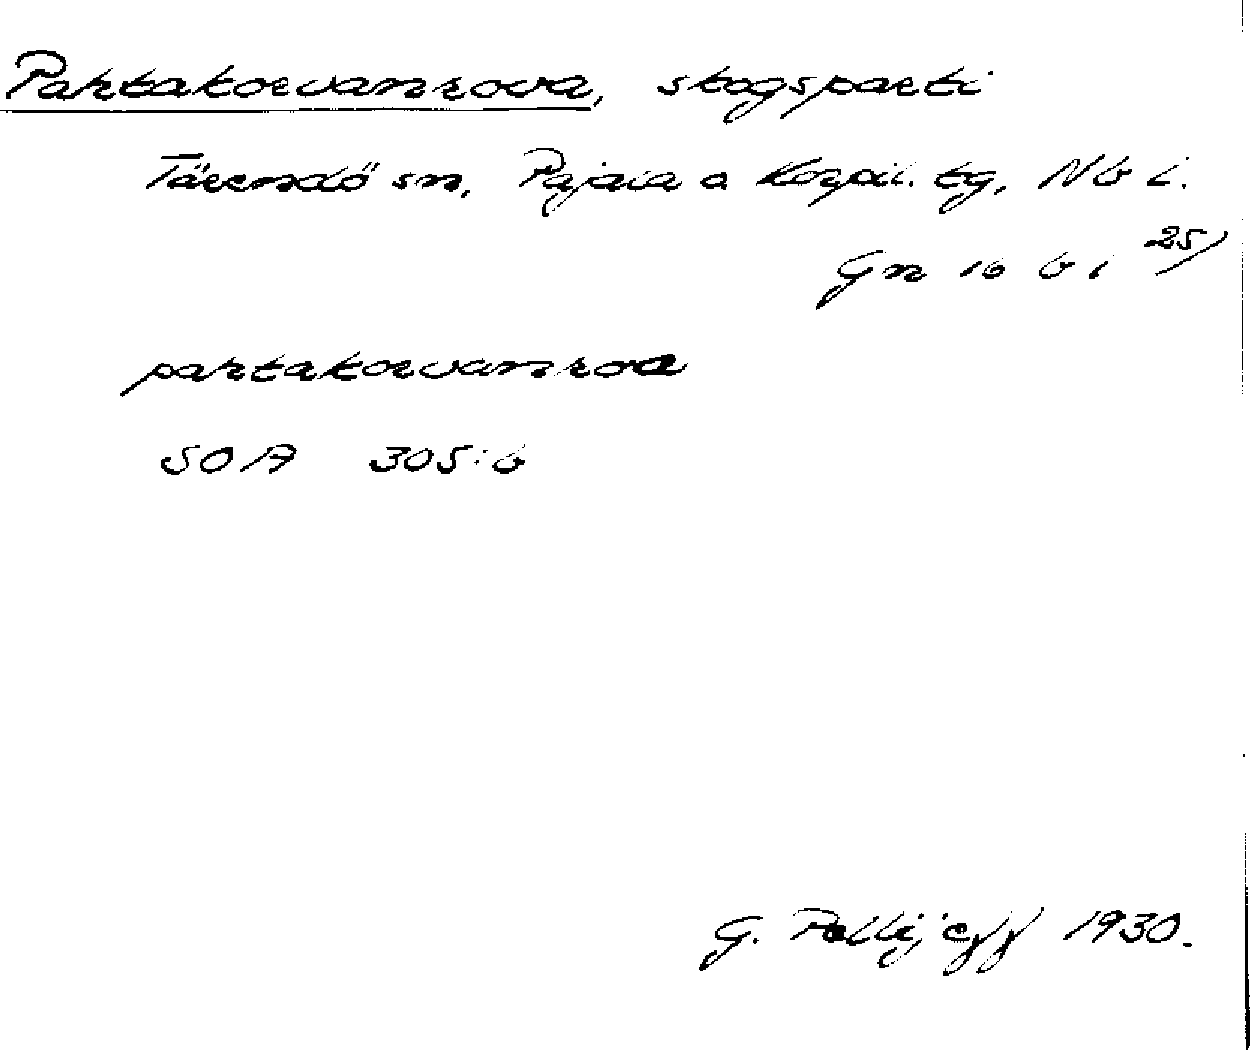 Partakorvanrova, skogsparti
Tärendö sn, Pajala o Korpil. tg, Nb l.
Gn 16 b 1 25)
partakorvanroa
SOA 305:6
G. Pellijeff 1930.